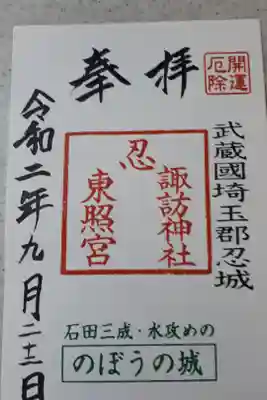 奉拝
開運
厄除
武蔵國埼玉郡忍城
忍
諏訪神社
東照宮
令和二年九月二十二日
石田三成・水攻めの
のぼうの城